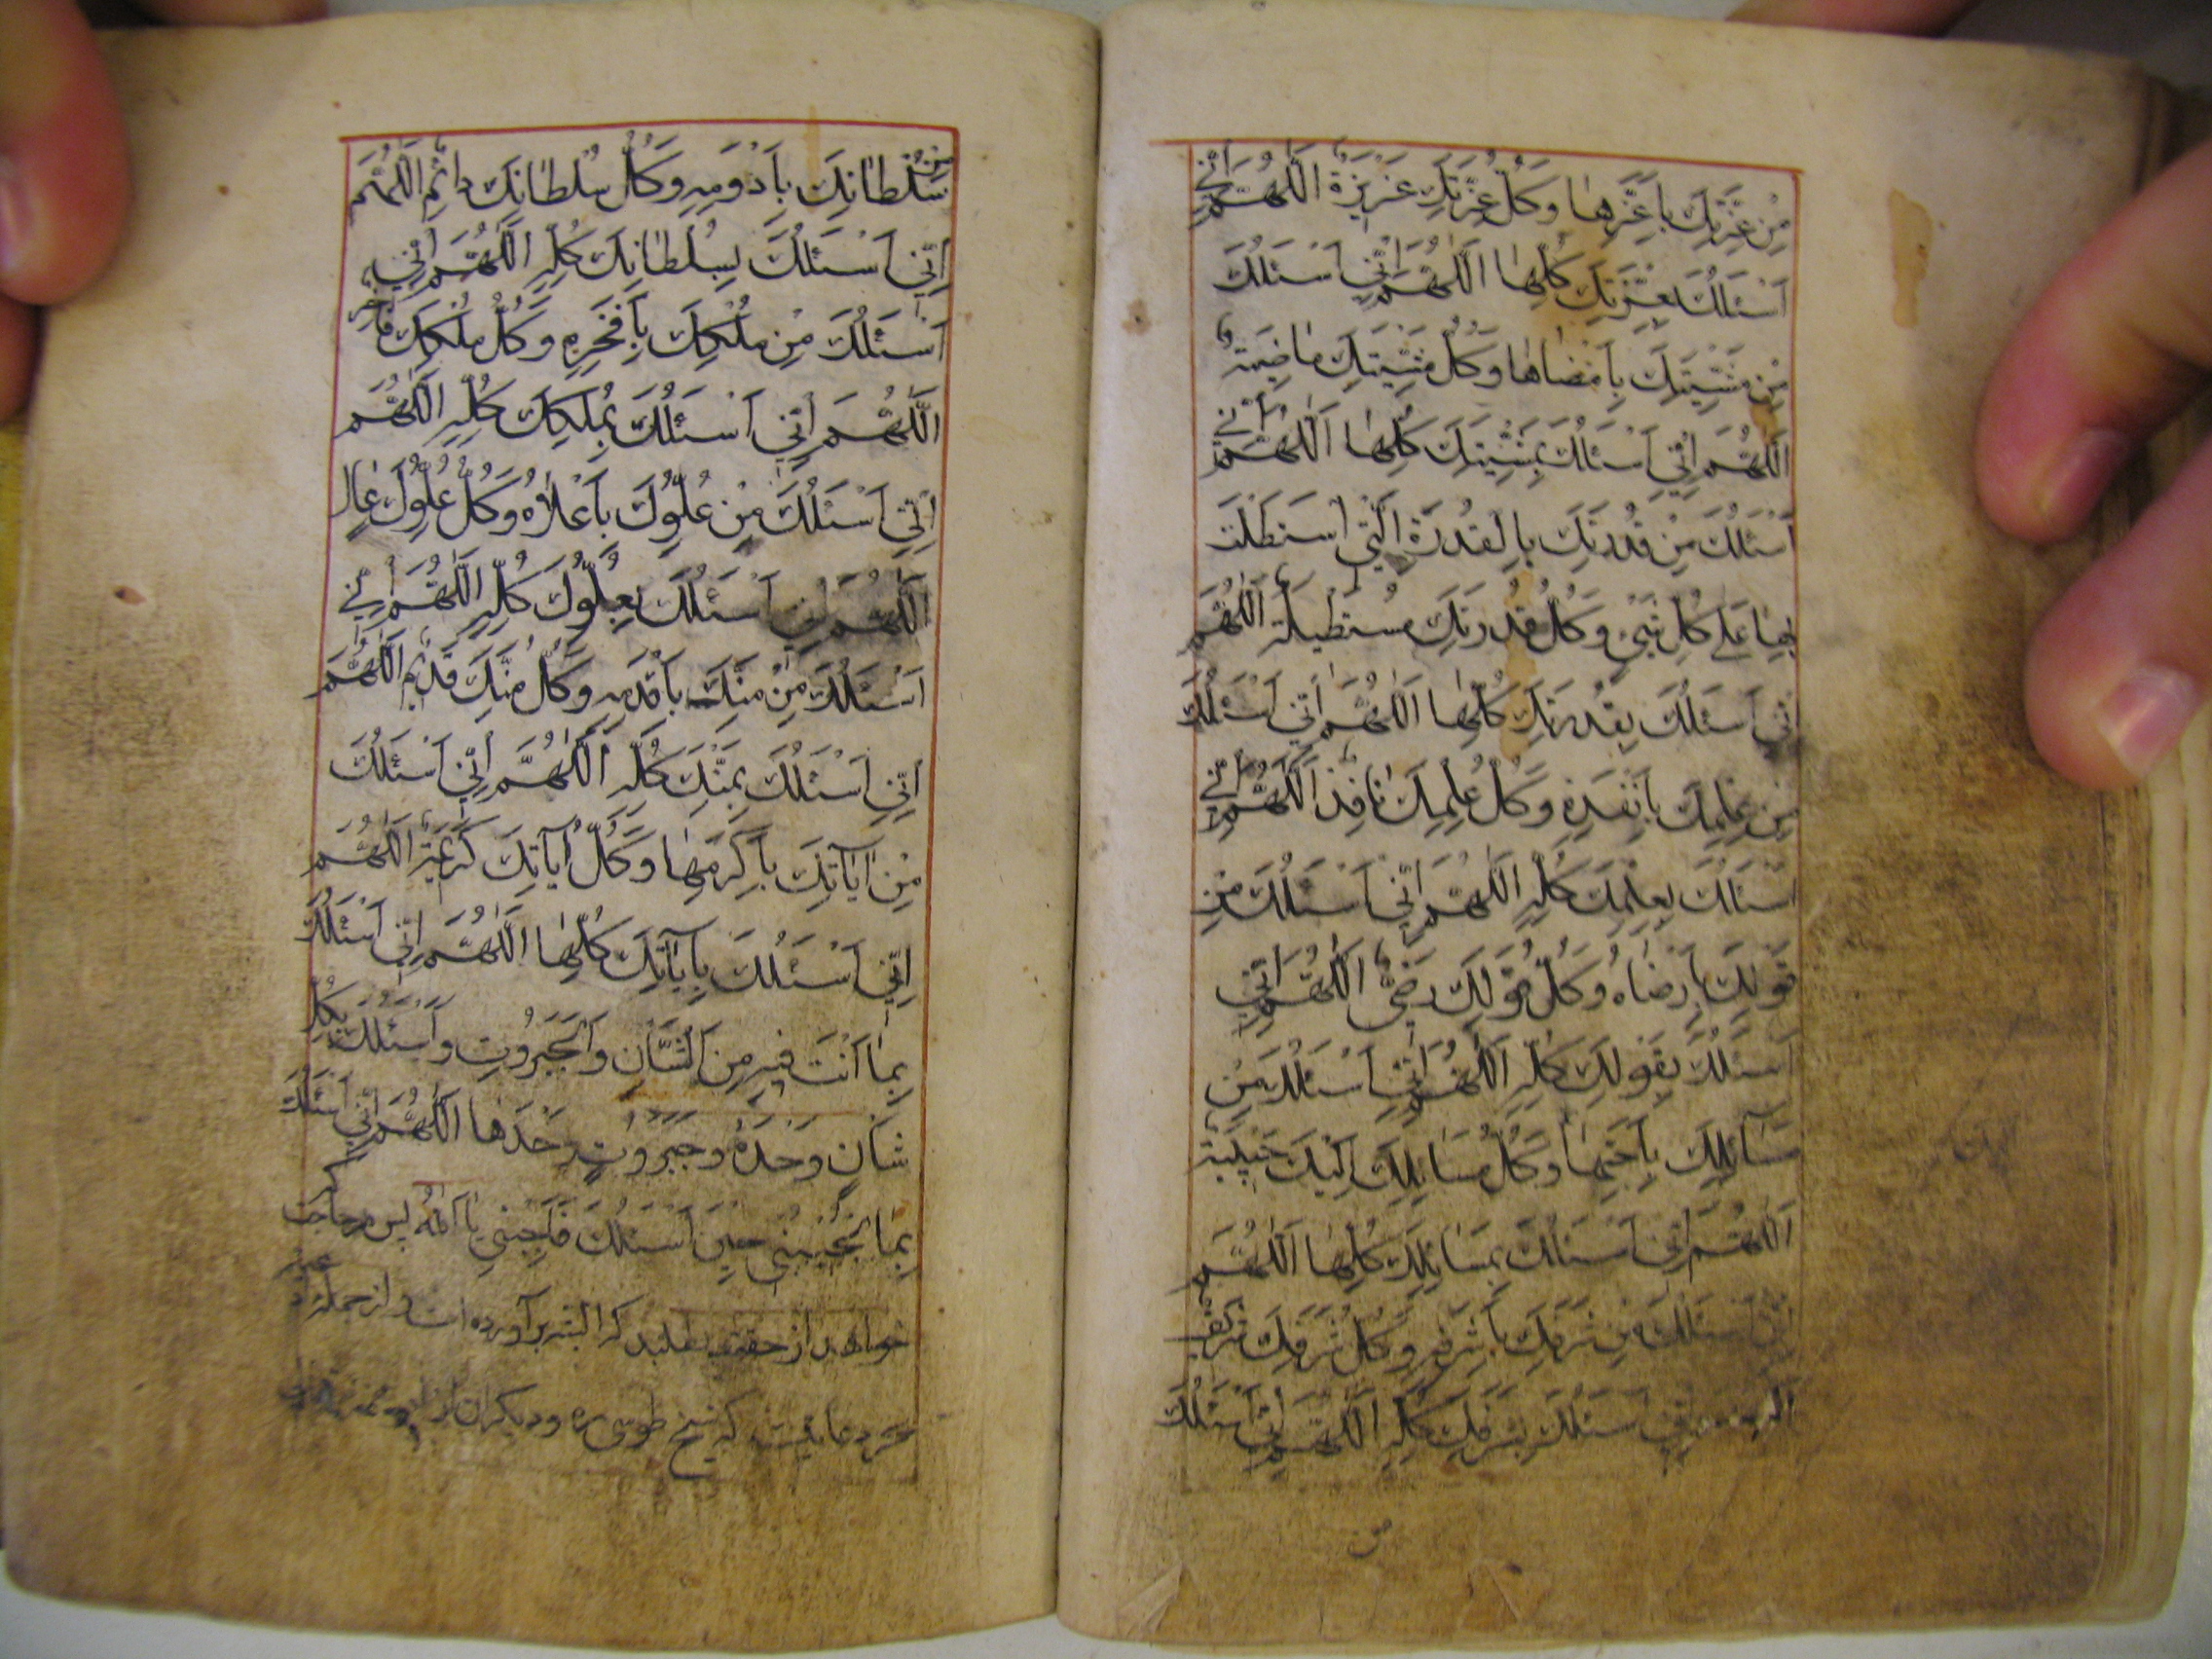 مِنْ عِزَّتِكَ بِاَعَزِّهٰا وَكُلُّ عِزَّتِكَ عَزیزَةٌ اَللّٰهُمَّ اِنّی
اَسْئَلُكَ بِعِزَّتِكَ كُلِّهٰا اَللّٰهُمَّ اِنّی اَسْئَلُكَ
مِنْ مَشِیَّتِكَ بِاَمْضٰاهٰا وَكُلُّ مَشِیَّتِكَ مٰاضِیَةٌ
اَللّٰهُمَّ اِنّی اَسْئَلُكَ بِمَشِیَّتِكَ كُلِّهٰا اَللّٰهُمَّ اِنّی
اَسْئَلُكَ مِنْ قُدْرَتِكَ بِالْقُدْرَةِ الَّتی اسْتَطَلْتَ
بِهٰا عَلٰی كُلِّ شَیْءٍ وَكُلُّ قُدْرَتِكَ مُسْتَطیلَةٌ اَللّٰهُمَّ
اِنّی اَسْئَلُكَ بِقُدْرَتِكَ كُلِّهٰا اَللّٰهُمَّ اِنّی اَسْئَلُكَ
مِنْ عِلْمِكَ بِاَنْفَذِهِ وَكُلُّ عِلْمِكَ نٰافِذٌ اَللّٰهُمَّ اِنّی
اَسْئَلُكَ بِعِلْمِكَ كُلِّهِ اَللّٰهُمَّ اِنّی اَسْئَلُكَ مِنْ
قَوْلِكَ بِاَرْضٰاهُ وَكُلُّ قَوْلِكَ رَضِیٌّ اَللّٰهُمَّ اِنّی
اَسْئَلُكَ بِقَوْلِكَ كُلِّهِ اَللّٰهُمَّ اِنّی اَسْئَلُكَ مِنْ
مَسٰآئِلِكَ بِاَحَبِّهٰا وَكُلُّ مَسٰائِلِكَ اِلَیْكَ حَبیبَةٌ
اَللّٰهُمَّ اِنّی اَسْئَلُكَ بِمَسٰائِلِكَ كُلِّهٰا اَللّٰهُمَّ
اِنّی اَسْئَلُكَ مِنْ شَرَفِكَ بِاَشْرَفِهِ وَكُلُّ شَرَفِكَ شَریفٌ
اَللّٰهُمَّ اِنّی اَسْئَلُكَ بِشَرَفِكَ كُلِّهِ اَللّٰهُمَّ اِنّی اَسْئَلُكَ
من
مِنْ سُلْطٰانِكَ بِاَدْوَمِهِ وَكُلُّ سُلْطٰانِكَ دٰائِمٌ اَللّٰهُمَّ
اِنّی اَسْئَلُكَ بِسُلْطٰانِكَ كُلِّهِ اَللّٰهُمَّ اِنّی
اَسْئَلُكَ مِنْ مُلْكِكَ بِاَفْخَرِهِ وَكُلُّ مُلْكِكَ فٰاخِرٌ
اَللّٰهُمَّ اِنّی اَسْئَلُكَ بِمُلْكِكَ كُلِّهِ اَللّٰهُمَّ
اِنّی اَسْئَلُكَ مِنْ عُلُوِّكَ بِاَعْلاٰهُ وَكُلُّ عُلُوِّكَ عٰالٍ
اَللّٰهُمَّ اِنّی اَسْئَلُكَ بِعُلُوِّكَ كُلِّهِ اَللّٰهُمَّ اِنّی
اَسْئَلُكَ مِنْ مَنِّكَ بِاَقْدَمِهِ وَكُلُّ مَنِّكَ قَدیمٌ اَللّٰهُمَّ
اِنّی اَسْئَلُكَ بِمَنِّكَ كُلِّهِ اَللّٰهُمَّ اِنّی اَسْئَلُكَ
مِنْ اٰیٰاتِكَ بِاَكْرَمِهٰا وَكُلُّ اٰیٰاتِكَ كَریمَةٌ اَللّٰهُمَّ
اِنّی اَسْئَلُكَ بِاٰیٰاتِكَ كُلِّهٰا اَللّٰهُمَّ اِنّی اَسْئَلُكَ
بِمٰا اَنْتَ فیهِ مِنَ الشَّأْنِ وَالْجَبَرُوتِ وَاَسْئَلُكَ بِكُلِّ
شَأْنٍ وَحْدَهُ وَجَبَرُوتٍ وَحْدَهٰا اَللّٰهُمَّ اِنّی اَسْئَلُكَ
بِمٰا تُجیبُنی حینَ اَسْئَلُكَ فَاَجِبْنی یٰا اَللّٰهُ پس هر حاجت كه
خواهد از حقتعالی بطلبد كه البته برآورده است و از جمله ادعیه
سحر دعائیست كه شیخ طوسی ره و دیگران از